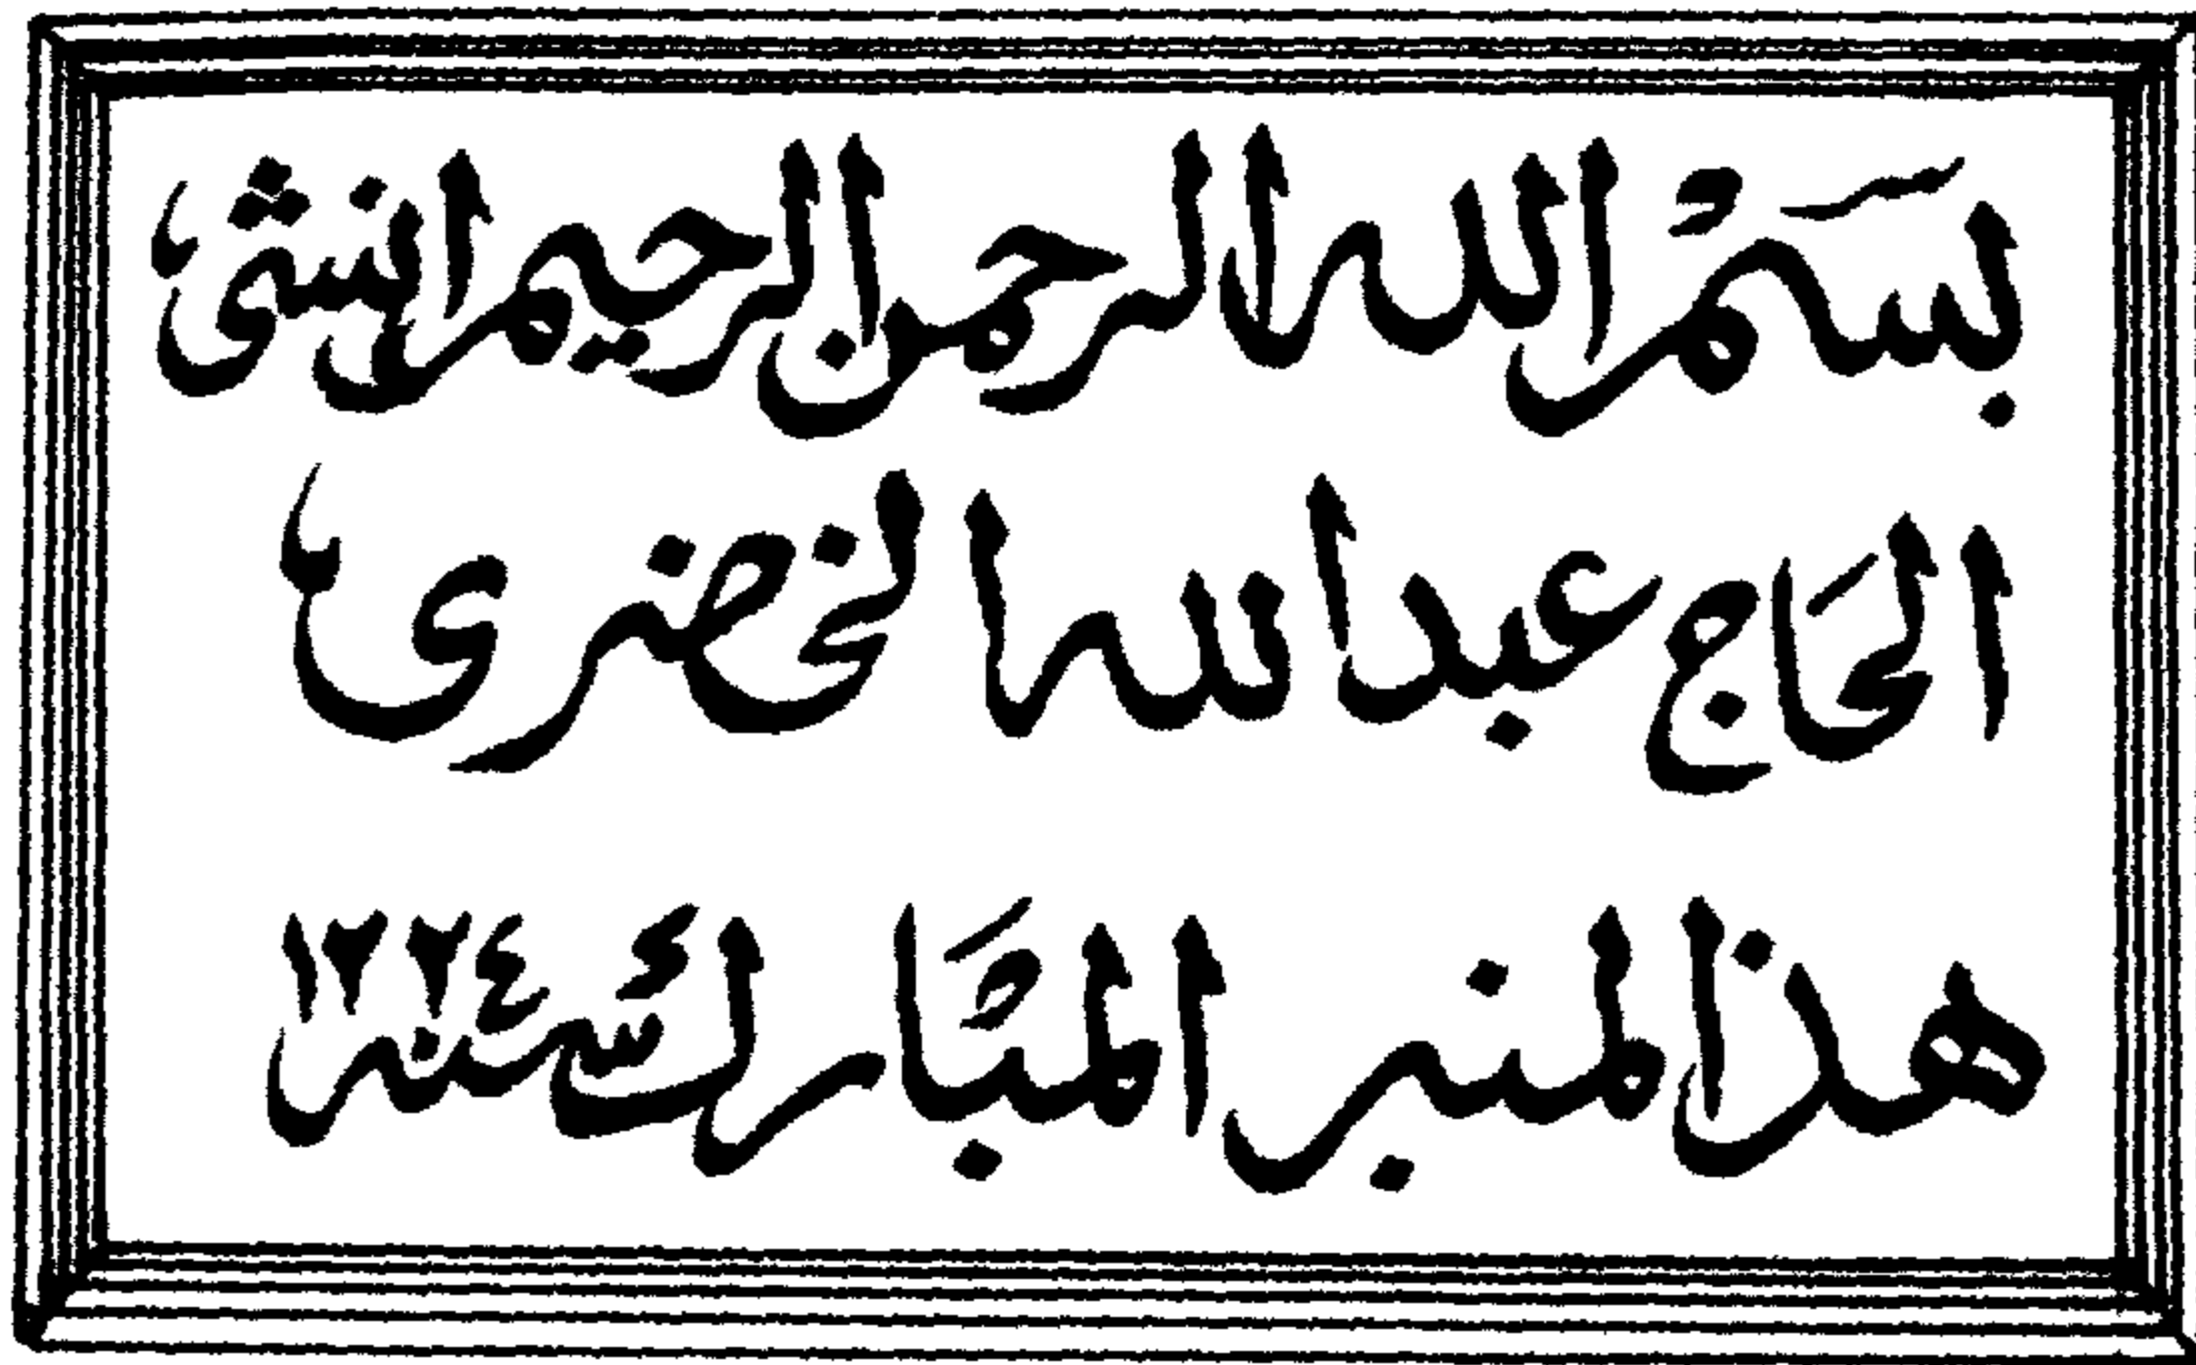 بسم الله الرحمن الرحيم انشئ
الحاج عبدالله الخضرى
هذا المنبر المبارك سنه ١٢٢٤